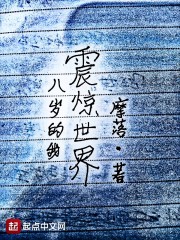 八岁的我
震惊世界
摩落·著
起点 起点中文网